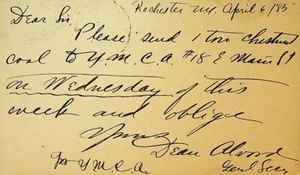 Rochester N.Y. April 6/83
Dear Sir
Please send 1 ton chestnut
coal to Y.M.C.A. #18 E Main St
on Wednesday of this
week and oblige
Yours
Dean Alvord
for Y.M.C.A. Genl Secy